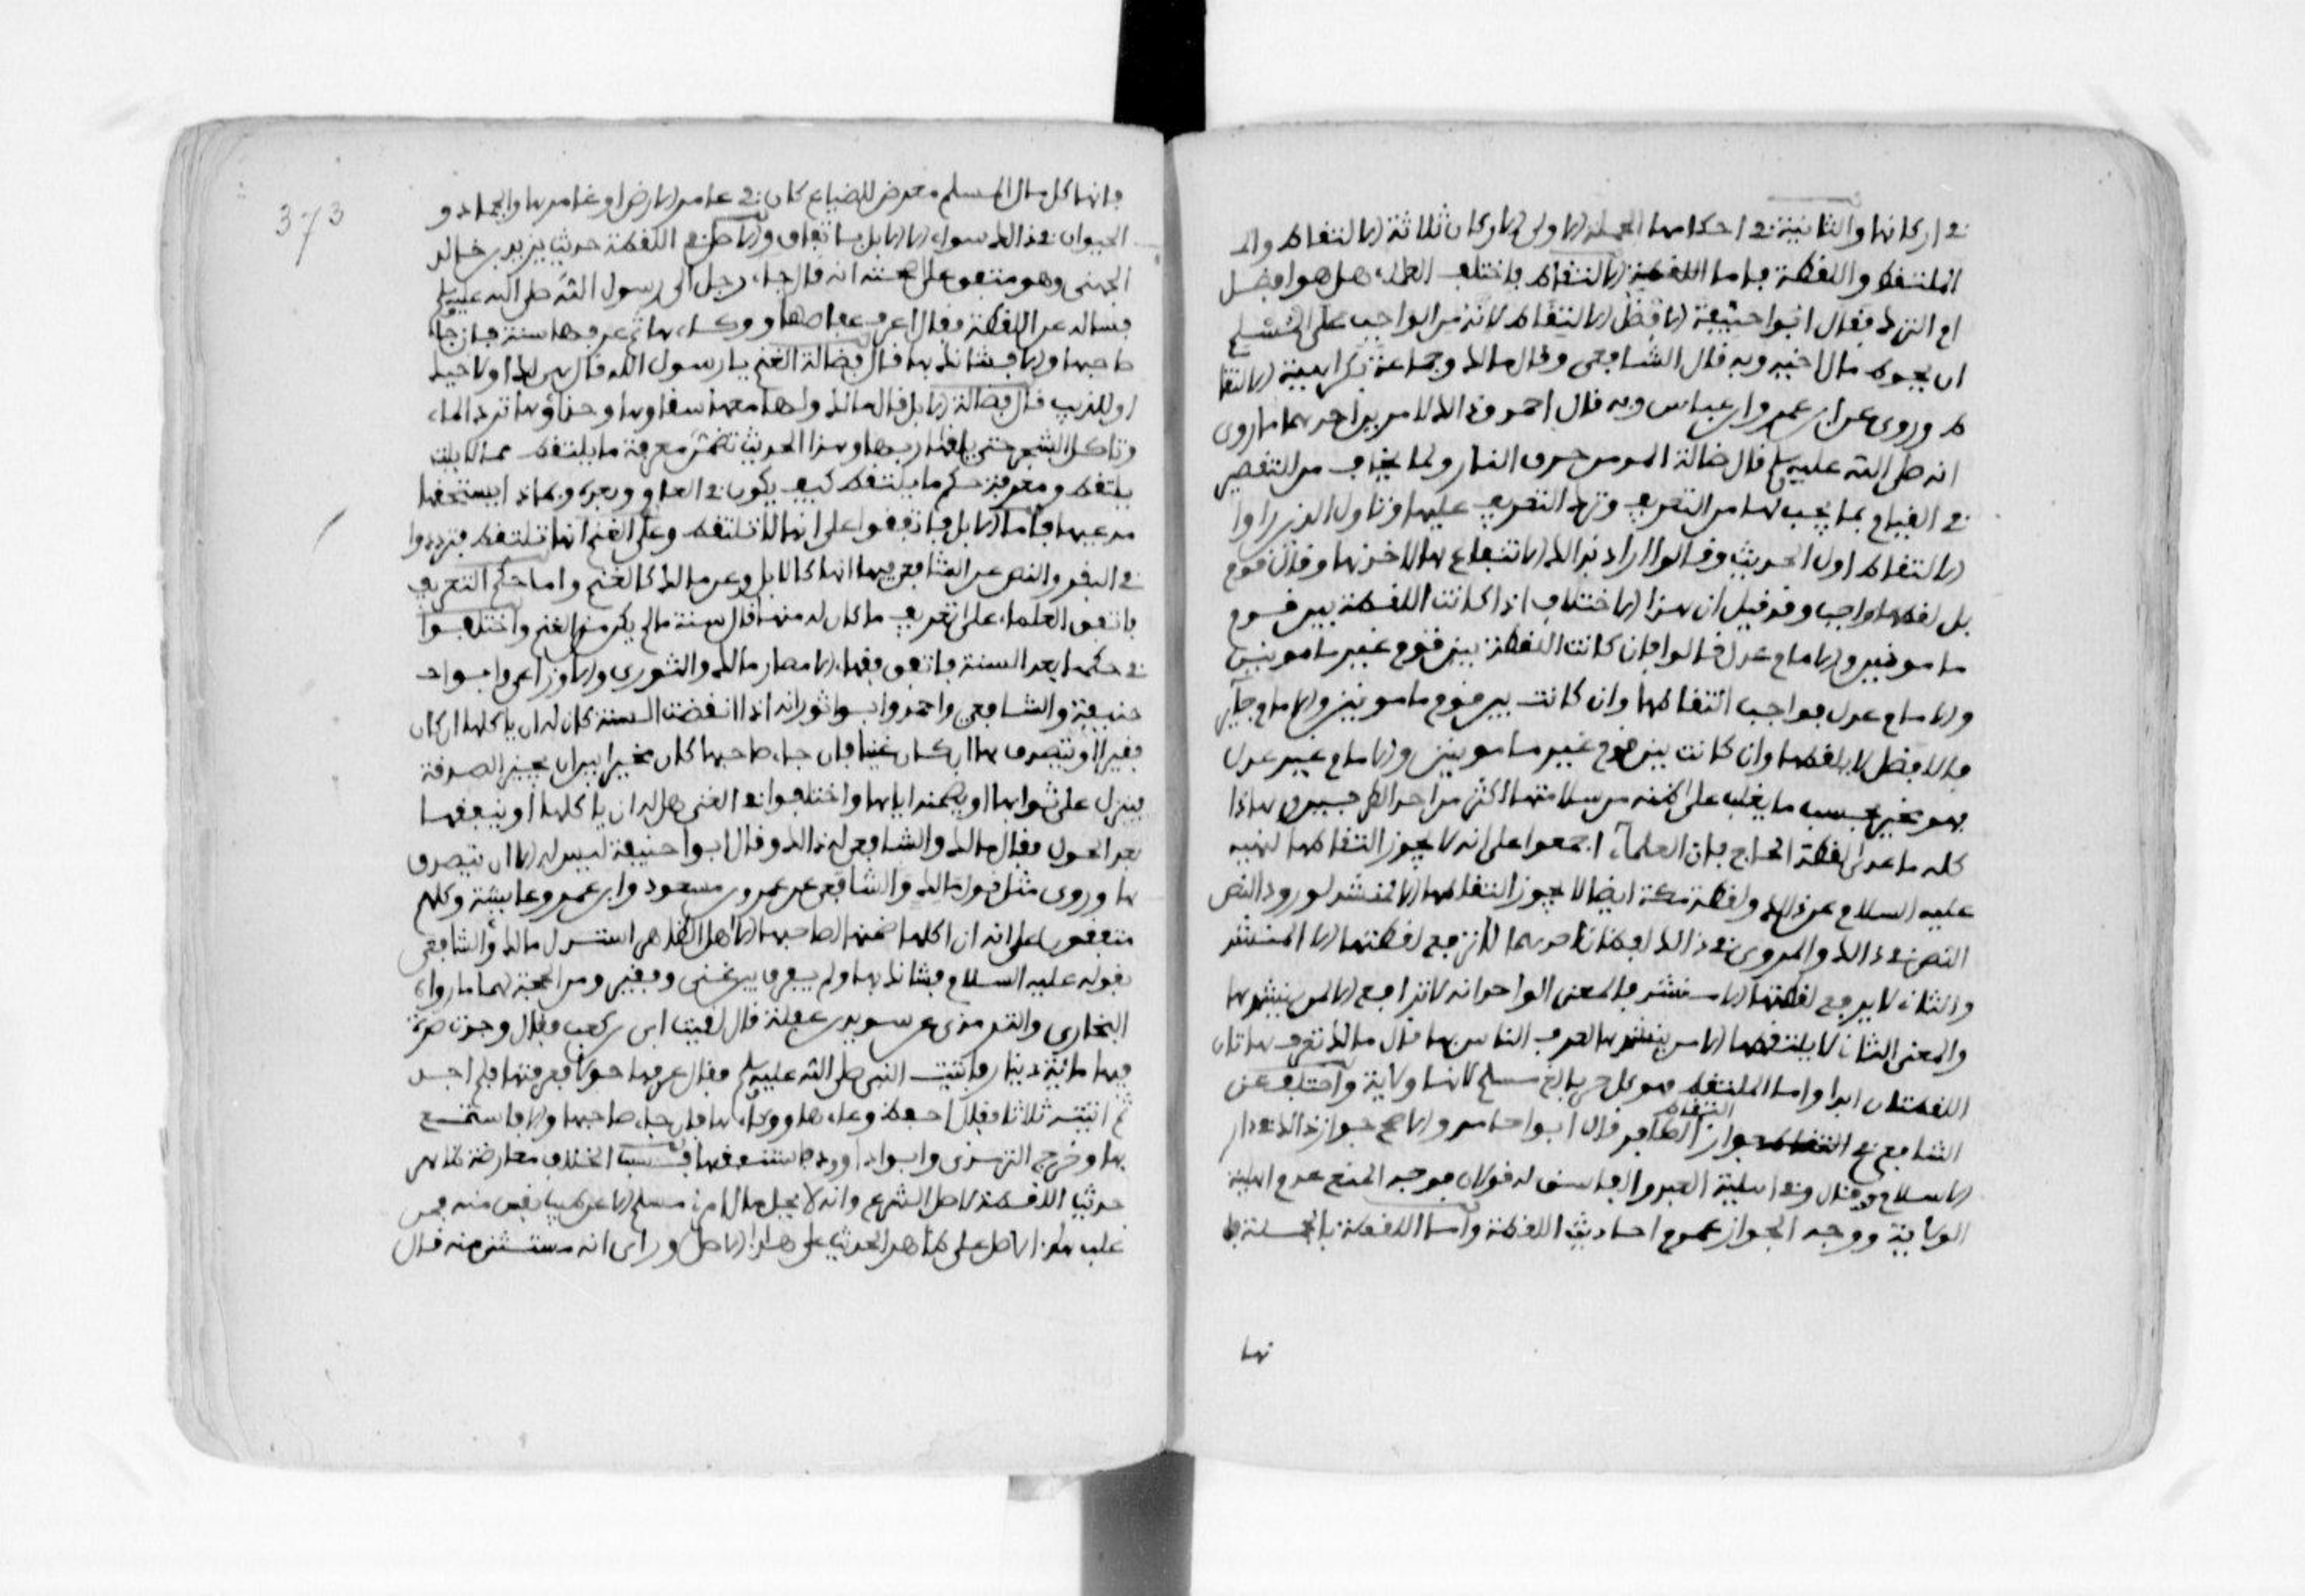 في اركانها والثانية في احكامها الجملة الاولى الاركان ثلاثة الالتقاط والـ
الملتقط واللقطة فاما الالتقاط فاختلف العلماء هل هو افضل
ام الترك فقال ابو حنيفة الافضل الالتقاط لانه من الواجب على المسلم
ان يحوط مال اخيه وبه قال الشافعي وقال مالك وجماعة بكراهية الالتقا
ط وروي عن ابن عمر وابن عباس وبه قال احمد وذلك لامرين احدهما ما روي
انه صلى الله عليه وسلم قال ضالة المومن حرق النار ولما يخاف من التقصير
في القيام بما يجب لها من التعريف وترك التعدي عليها وتاول الذين راوا
الالتقاط اول الحديث وقالوا اراد بذلك الانتفاع بها لا اخذها وقال قوم
بل لقطها واجب وقد قيل ان هذا الاختلاف اذا كانت اللقطة بين قوم
مامونين والامام عدل قالوا فان كانت اللقطة بين قوم غير مامونين
والامام عدل فواجب التقاطها وان كانت بين قوم مامونين والامام جاير
فالافضل لا يلقطها وان كانت بين قوم غير مامونين والامام غير عدل
فهو مخير بحسب ما يغلب على ظنه من سلامتها اكثر من احد الطرفين وهاذا
كله ما عدى لقطة الحاج فان العلماء اجمعوا على انه لا يجوز التقاطها لنهيه
عليه السلام عن ذلك ولقطة مكة ايضا لا يجوز التقاطها الا لمنشد لورود النص
النص في ذالك والمروي في ذالك لفظان احدهما لا ترفع لقطتها الا لمنشد
والثاني لا يرفع لقطتها الا منشد فالمعنى الواحد انه لا ترفع الا لمن ينشدها
والمعنى الثاني لا يلتقطها الا من ينشدها ليعرف الناس بها وقال مالك تعرف هاتان
اللقطتان ابدا واما الملتقط فهو كل حر بالغ مسلم لانها ولاية واختلف عن
الشافعي في جواز التقاط الكافر قال ابو حامد والاصح جواز ذالك في دار
الاسلام قال وفي اهلية العبد والفاسق له قولان فوجه المنع عدم اهلية
الولاية ووجه الجواز عموم احاديث اللقطة واما اللقطة بالجملة فا
نها
373
فانها كل مال لمسلم معرض للضياع كان في عامر الارض او غامرها والجماد و
الحيوان في ذالك سواء الا الابل باتفاق والاصل في اللقطة حديث يزيد بن خالد
الجهني وهو متفق على صحته انه قال جاء رجل الى رسول الله صلى الله عليه وسلم
فساله عن اللقطة فقال اعرف عفاصها ووكاءها ثم عرفها سنة فان جاء
صاحبها والا فشانك بها قال فضالة الغنم يا رسول الله قال هي لك او لاخيك
او للذيب قال فضالة الابل قال مالك ولها معها سقاوها وحذاؤها ترد الماء
وتاكل الشجر حتى يلقاها ربها وهذا الحديث تضمن معرفة ما يلتقط مما لا يلت
يلتقط ومعرفة حكم ما يلتقط كيف يكون في العام وبعده وبماذا يستحقها
مدعيها فاما الابل فاتفقوا على انها لا تلتقط وعلى الغنم انها تلتقط وترددوا
في البقر والنص عن الشافعي فيها انها كالابل وعن مالك كالغنم واما حكم التعريف
فاتفق العلماء على تعريف ما كان له منها بال سنة ما لم يكن من الغنم واختلفوا
في حكمها بعد السنة فاتفق فقهاء الامصار مالك والثوري والاوزاعي وابو
حنيفة والشافعي واحمد وابو ثور انه اذا انقضت السنة كان له ان ياكلها ان كان
فقيرا او يتصدق بها ان كان غنيا فان جاء صاحبها كان مخيرا بين ان يجيز الصدقة
فينزل على ثوابها او يضمنه اياها واختلفوا في الغني هل له ان ياكلها او ينفقها
بعد الحول فقال مالك والشافعي له ذالك وقال ابو حنيفة ليس له الا ان يتصدق
بها وروي مثل قول مالك والشافعي عن عمر وابن مسعود وابن عمر وعايشة وكلهم
متفقون على انه ان اكلها ضمنها لصاحبها الا اهل الظاهر استدل مالك والشافعي
بقوله عليه السلام فشانك بها ولم يفرق بين غني وفقير ومن الحجة لهما ما رواه
البخاري والترمذي عن سويد بن غفلة قال لقيت ابي بن كعب فقال وجدت صرة
فيها ماية دينار فاتيت النبي صلى الله عليه وسلم فقال عرفها حولا فعرفتها فلم اجد
ثم اتيته ثلاثا فقال احفظ وعاءها ووكاءها فان جاء صاحبها والا فاستمتع
بها وخرج الترمذي وابو داوود فاستنفقها فسبب الخلاف معارضة ظاهر
حديث اللقطة لاصل الشرع وانه لا يحل مال امرئ مسلم الا عن طيب نفس منه فمن
غلب هذا الاصل على ظاهر الحديث على هذا الاصل وراى انه مستثنى منه قال